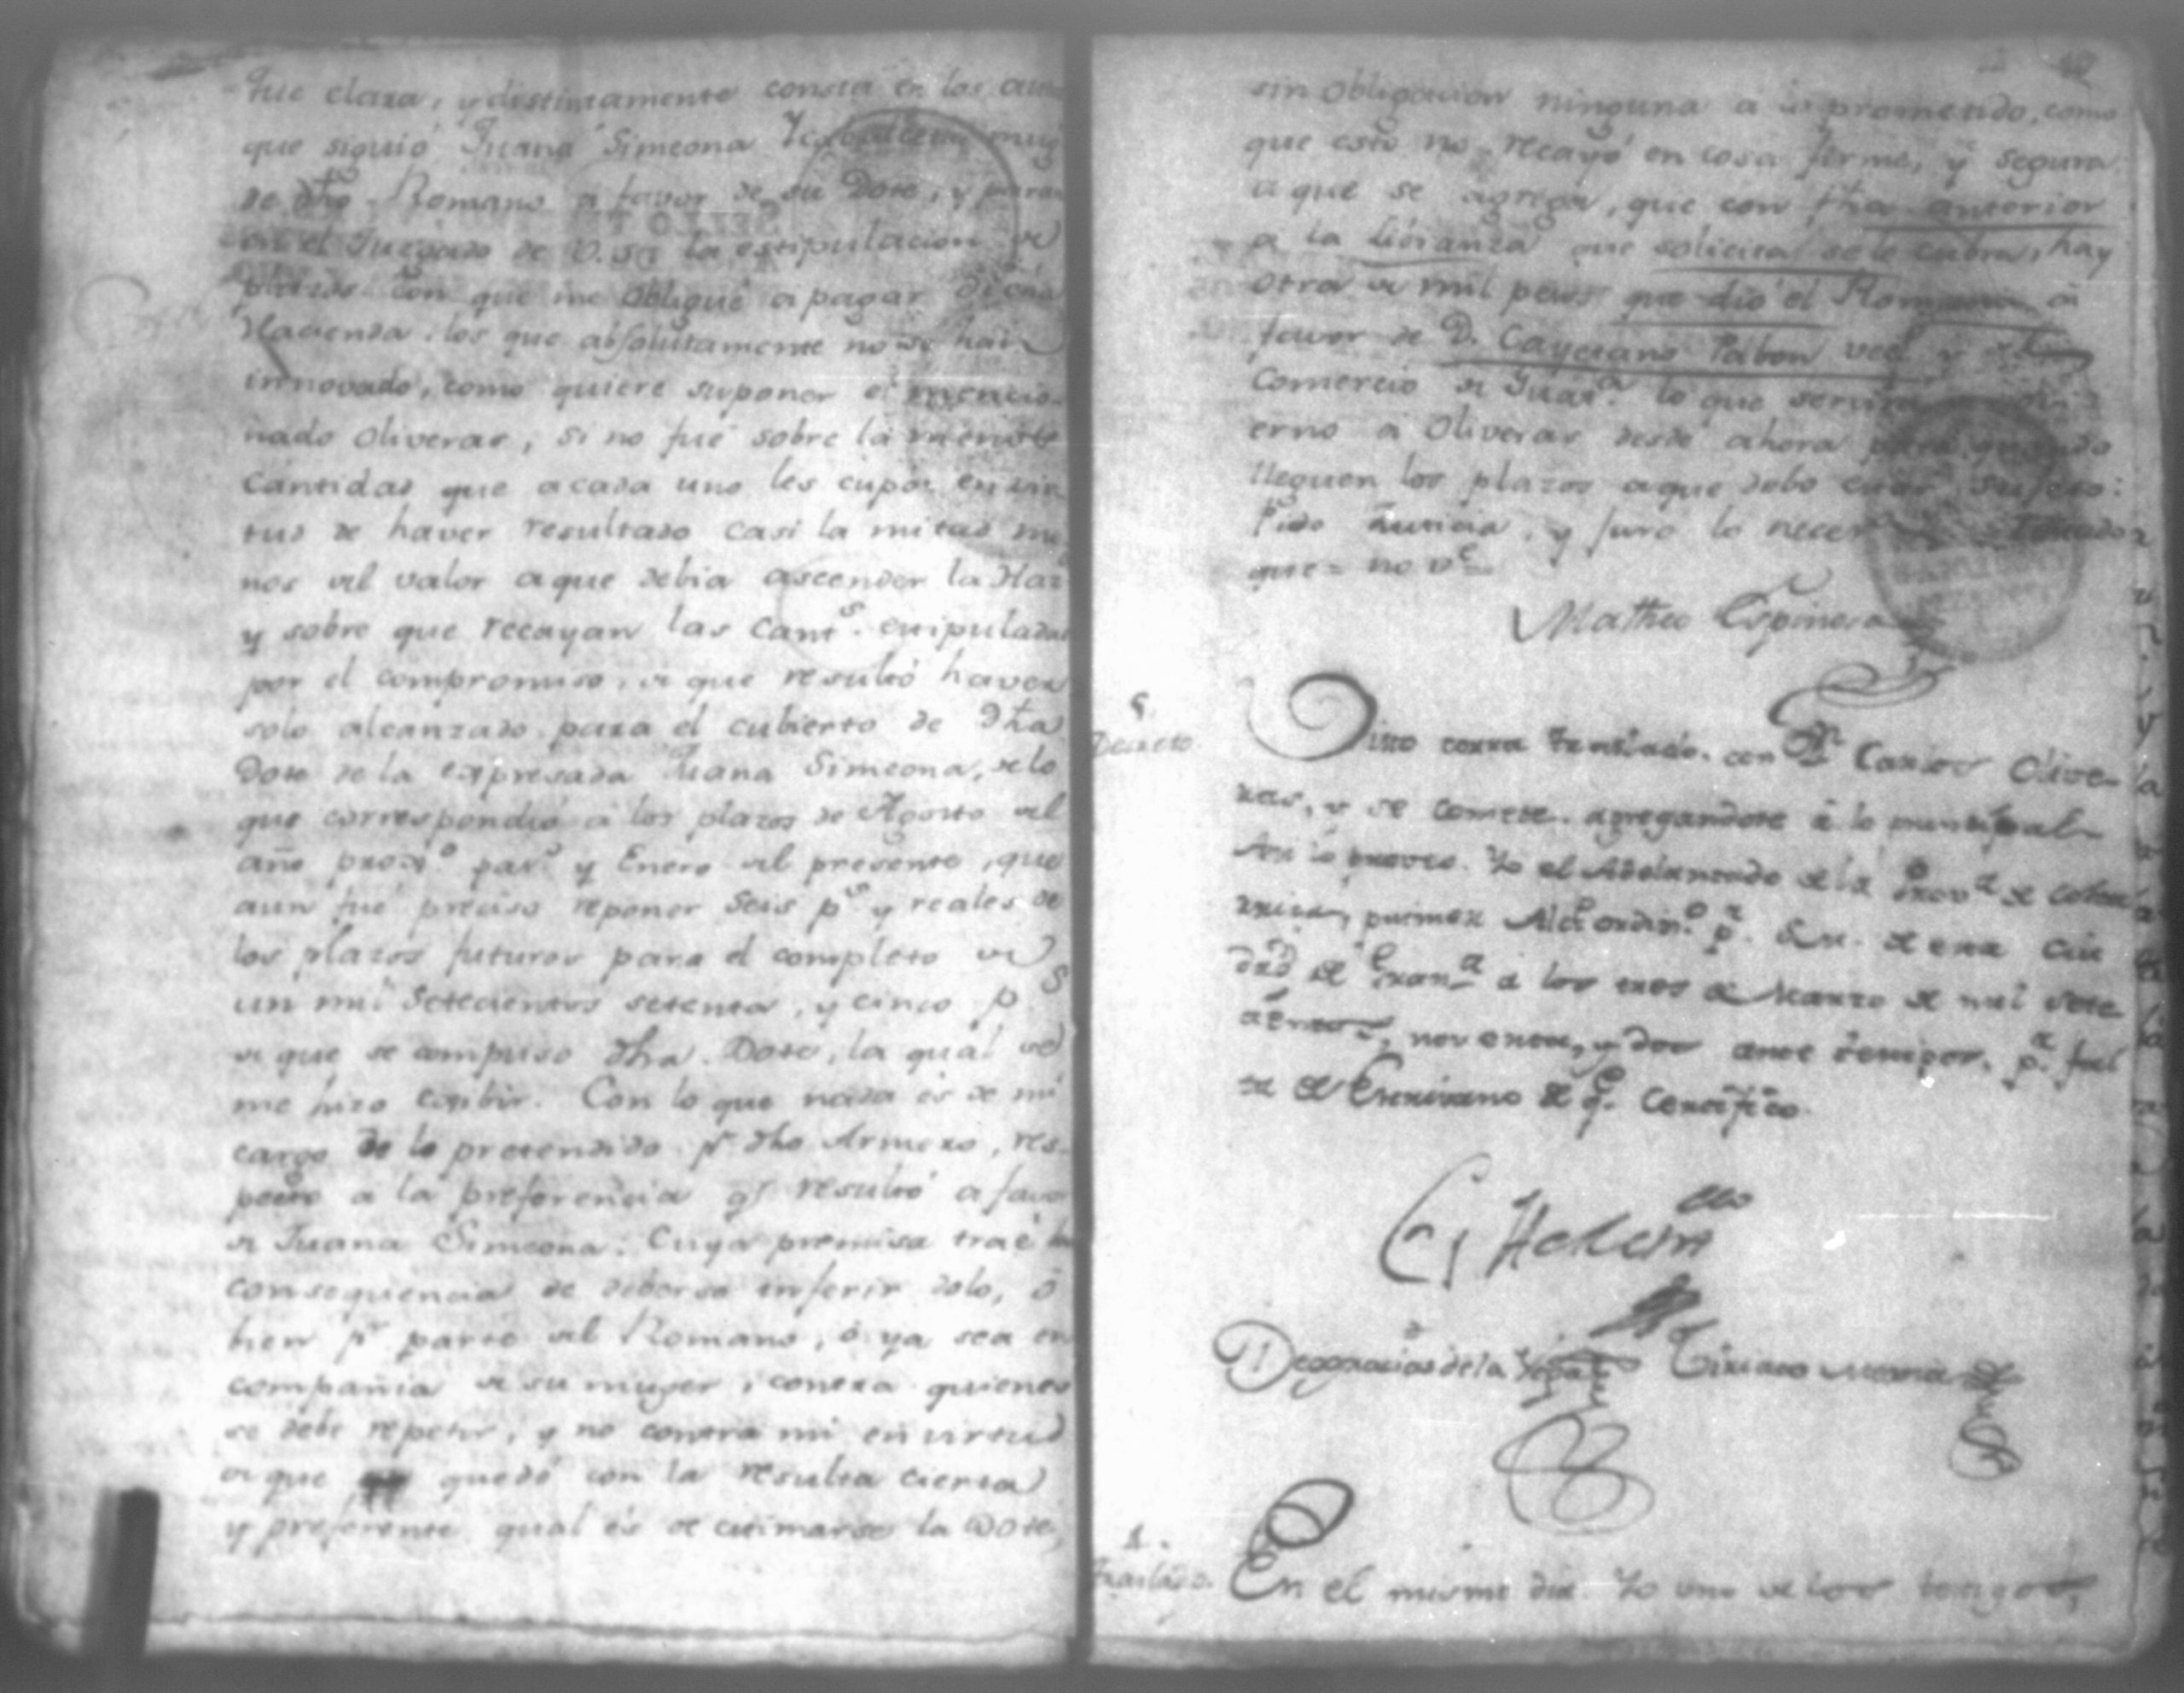 que clara, y distintamente consta en los autos
que siguió Juana Simeona muger
de dho Romano a favor de su Dote, y
en el Juzgado de V. la estipulacion de
plazos con que me obligué a pagar
Hacienda. los que absolutamente no se han
innovado, como quiere suponer el mencio-
nado Oliveras, si no fué sobre la
cantidad que a cada uno les cupo en vir
tud de haver resultado casi la mitad me
nos del valor a que debia ascender la Haz
y sobre que recayan las cant.s estipuladas
por el compromiso, de que resultó haver
solo alcanzado para el cubierto de dha
Dote de la expresada Juana Simeona, lo
que correspondió á los plazos de Agosto del
año prox.o pas.o y Enero del presente, que
aun fué preciso reponer seis p.s y reales de
los plazos futuros para el completo de
un mil setecientos setenta, y cinco p.s
de que se compuso dha Dote, la qual se
me hizo exibir. Con lo que nada és de mi
cargo de lo pretendido pr dho Armero, res-
pecto a la preferencia q.e resultó a favor
de Juana Simeona. Cuya premisa traé la
consequencia de deberse inferir dolo, ó
bien pr parte del Romano, ó ya sea en
compañia de su muger, contra quienes
se debe repetir, y no contra mi en virtud
de que quedó con la resulta cierta
y preferente qual és de estimarse la Dote,
sin obligacion ninguna á lo prometido, como
que esto no recayó en cosa firme, y segura
a que se agrega, que con fha anterior
a la libranza que solicita se le cubra, hay
otra de mil pesos que dió el Romano á
favor de D. Cayetano Pabon vec.o y
Comercio de Juax.a lo que servirá
erno a Oliveras desde ahora para quando
lleguen los plazos a que debo estar sujeto:
Pido Justicia, y juro lo necesario
que = no v.e =
Matheo Espinosa
Decreto.
Visto corra traslado. con Dn Carlos Olive-
ras, y se comete. agregandose á lo principal
Asi lo proveo. Yo el Adelantado de la Prov.a de Costa
rrica, primer Alc.e ordin.o p.r S. M. de esta Ciu
dad de Gran.a á los tres de Marzo de mil sete
cientos, noventa, y dos ante testigos. p.r fal
ta de Escrivano de q.e Certifico.
Deogracias de la Ciriaco
Traslado.
En el mismo dia Yo uno de los testigos,